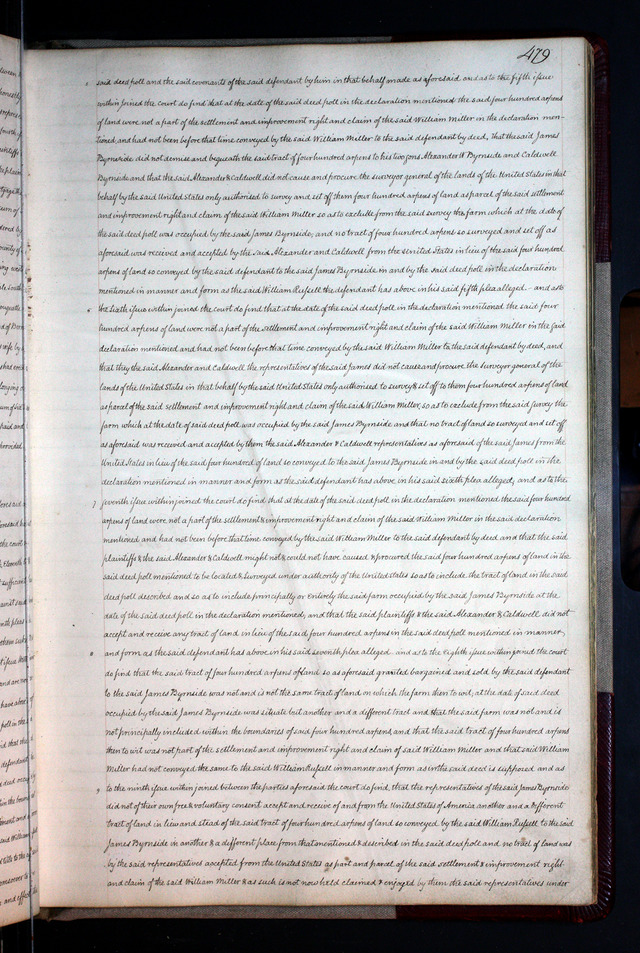 479
said deed poll and the said covenants of the said defendant by him in that behalf made as aforesaid and as to the fifth issue
within joined the court do find that at the date of the said deed poll in the declaration mentioned the said four hundred arpens
of land were not a part of the settlement and improvement right and claim of the said William Miller in the declaration men-
tioned and had not been before that time conveyed by the said William Miller to the said defendant by deed, that the said James
Byrnside did not demise and bequeath the said tract of four hundred arpens to his two sons Alexander & Byrnside and Caldwell
Byrnside and that the said Alexander & Caldwell did not cause and procure the surveyor general of the lands of the United States in that
behalf by the said United States only authorised to survey and set off them four hundred arpens of land as parcel of the said settlement
and improvement right and claim of the said William Miller so as to exclude from the said survey the farm which at the date of
the said deed poll was occupied by the said James Byrnside; and no tract of four hundred arpens so surveyed and set off as
aforesaid was received and accepted by the said Alexander and Caldwell from the United States in lieu of the said four hundred
arpens of land so conveyed by the said defendant to the said James Byrnside in and by the said deed poll in the declaration
mentioned in manner and form as the said William Russell the defendant has above in his said fifth plea alleged. and as to
6 the sixth issue within joined the court do find that at the date of the said deed poll in the declaration mentioned the said four
hundred arpens of land were not a part of the settlement and improvement right and claim of the said William Miller in the said
declaration mentioned and had not been before that time conveyed by the said William Miller to the said defendant by deed, and
that they the said Alexander and Caldwell the representatives of the said James did not cause and procure the surveyor general of the
lands of the United States in that behalf by the said United States only authorised to survey & set off to them four hundred arpens of land
as parcel of the said settlement and improvement right and claim of the said William Miller, so as to exclude from the said survey the
farm which at the date of said deed poll was occupied by the said James Byrnside and that no tract of land so surveyed and set off
as aforesaid was received and accepted by them the said Alexander & Caldwell representatives as aforesaid of the said James from the
United States in lieu of the said four hundred of land so conveyed to the said James Byrnside in and by the said deed poll in the
declaration mentioned in manner and form as the said defendant has above in his said sixth plea alleged, and as to the
7 seventh issue within joined the court do find that at the date of the said deed poll in the declaration mentioned the said four hundred
arpens of land were not a part of the settlement & improvement right and claim of the said William Miller in the said declaration
mentioned and had not been before that time conveyed by the said William Miller to the said defendant by deed and that the said
plaintiffs & the said Alexander & Caldwell might not & could not have caused & procured the said four hundred arpens of land in the
said deed poll mentioned to be located & surveyed under authority of the United States so as to include the tract of land in the said
deed poll described and so as to include principally or entirely the said farm occupied by the said James Byrnside at the
date of the said deed poll in the declaration mentioned, and that the said plaintiffs & the said Alexander & Caldwell did not
accept and receive any tract of land in lieu of the said four hundred arpens in the said deed poll mentioned in manner,
8 and form as the said defendant has above in his said seventh plea alleged and as to the eighth issue within joined the court
do find that the said tract of four hundred arpens of land so as aforesaid granted bargained and sold by the said defendant
to the said James Byrnside was not and is not the same tract of land on which the farm then to wit, at the date of said deed
occupied by the said James Byrnside was situate but another and a different tract and that the said farm was not and is
not principally included within the boundaries of said four hundred arpens, and that the said tract of four hundred arpens
then to wit was not part of the settlement and improvement right and claim of said William Miller and that said William
Miller had not conveyed the same to the said William Russell in manner and form as in the said deed is supposed and as
9 to the ninth issue within joined between the parties aforesaid the court do find, that the representatives of the said James Byrnside
did not of their own free & voluntary consent accept and receive of and from the United States of America another and a different
tract of land in lieu and stead of the said tract of four hundred arpens of land so conveyed by the said William Russell to the said
James Byrnside in another & a different place from that mentioned & described in the said deed poll and no tract of land was
by the said representatives accepted from the United States as part and parcel of the said settlement & improvement right
and claim of the said William Miller & as such is not now held claimed & enjoyed by them the said representatives under